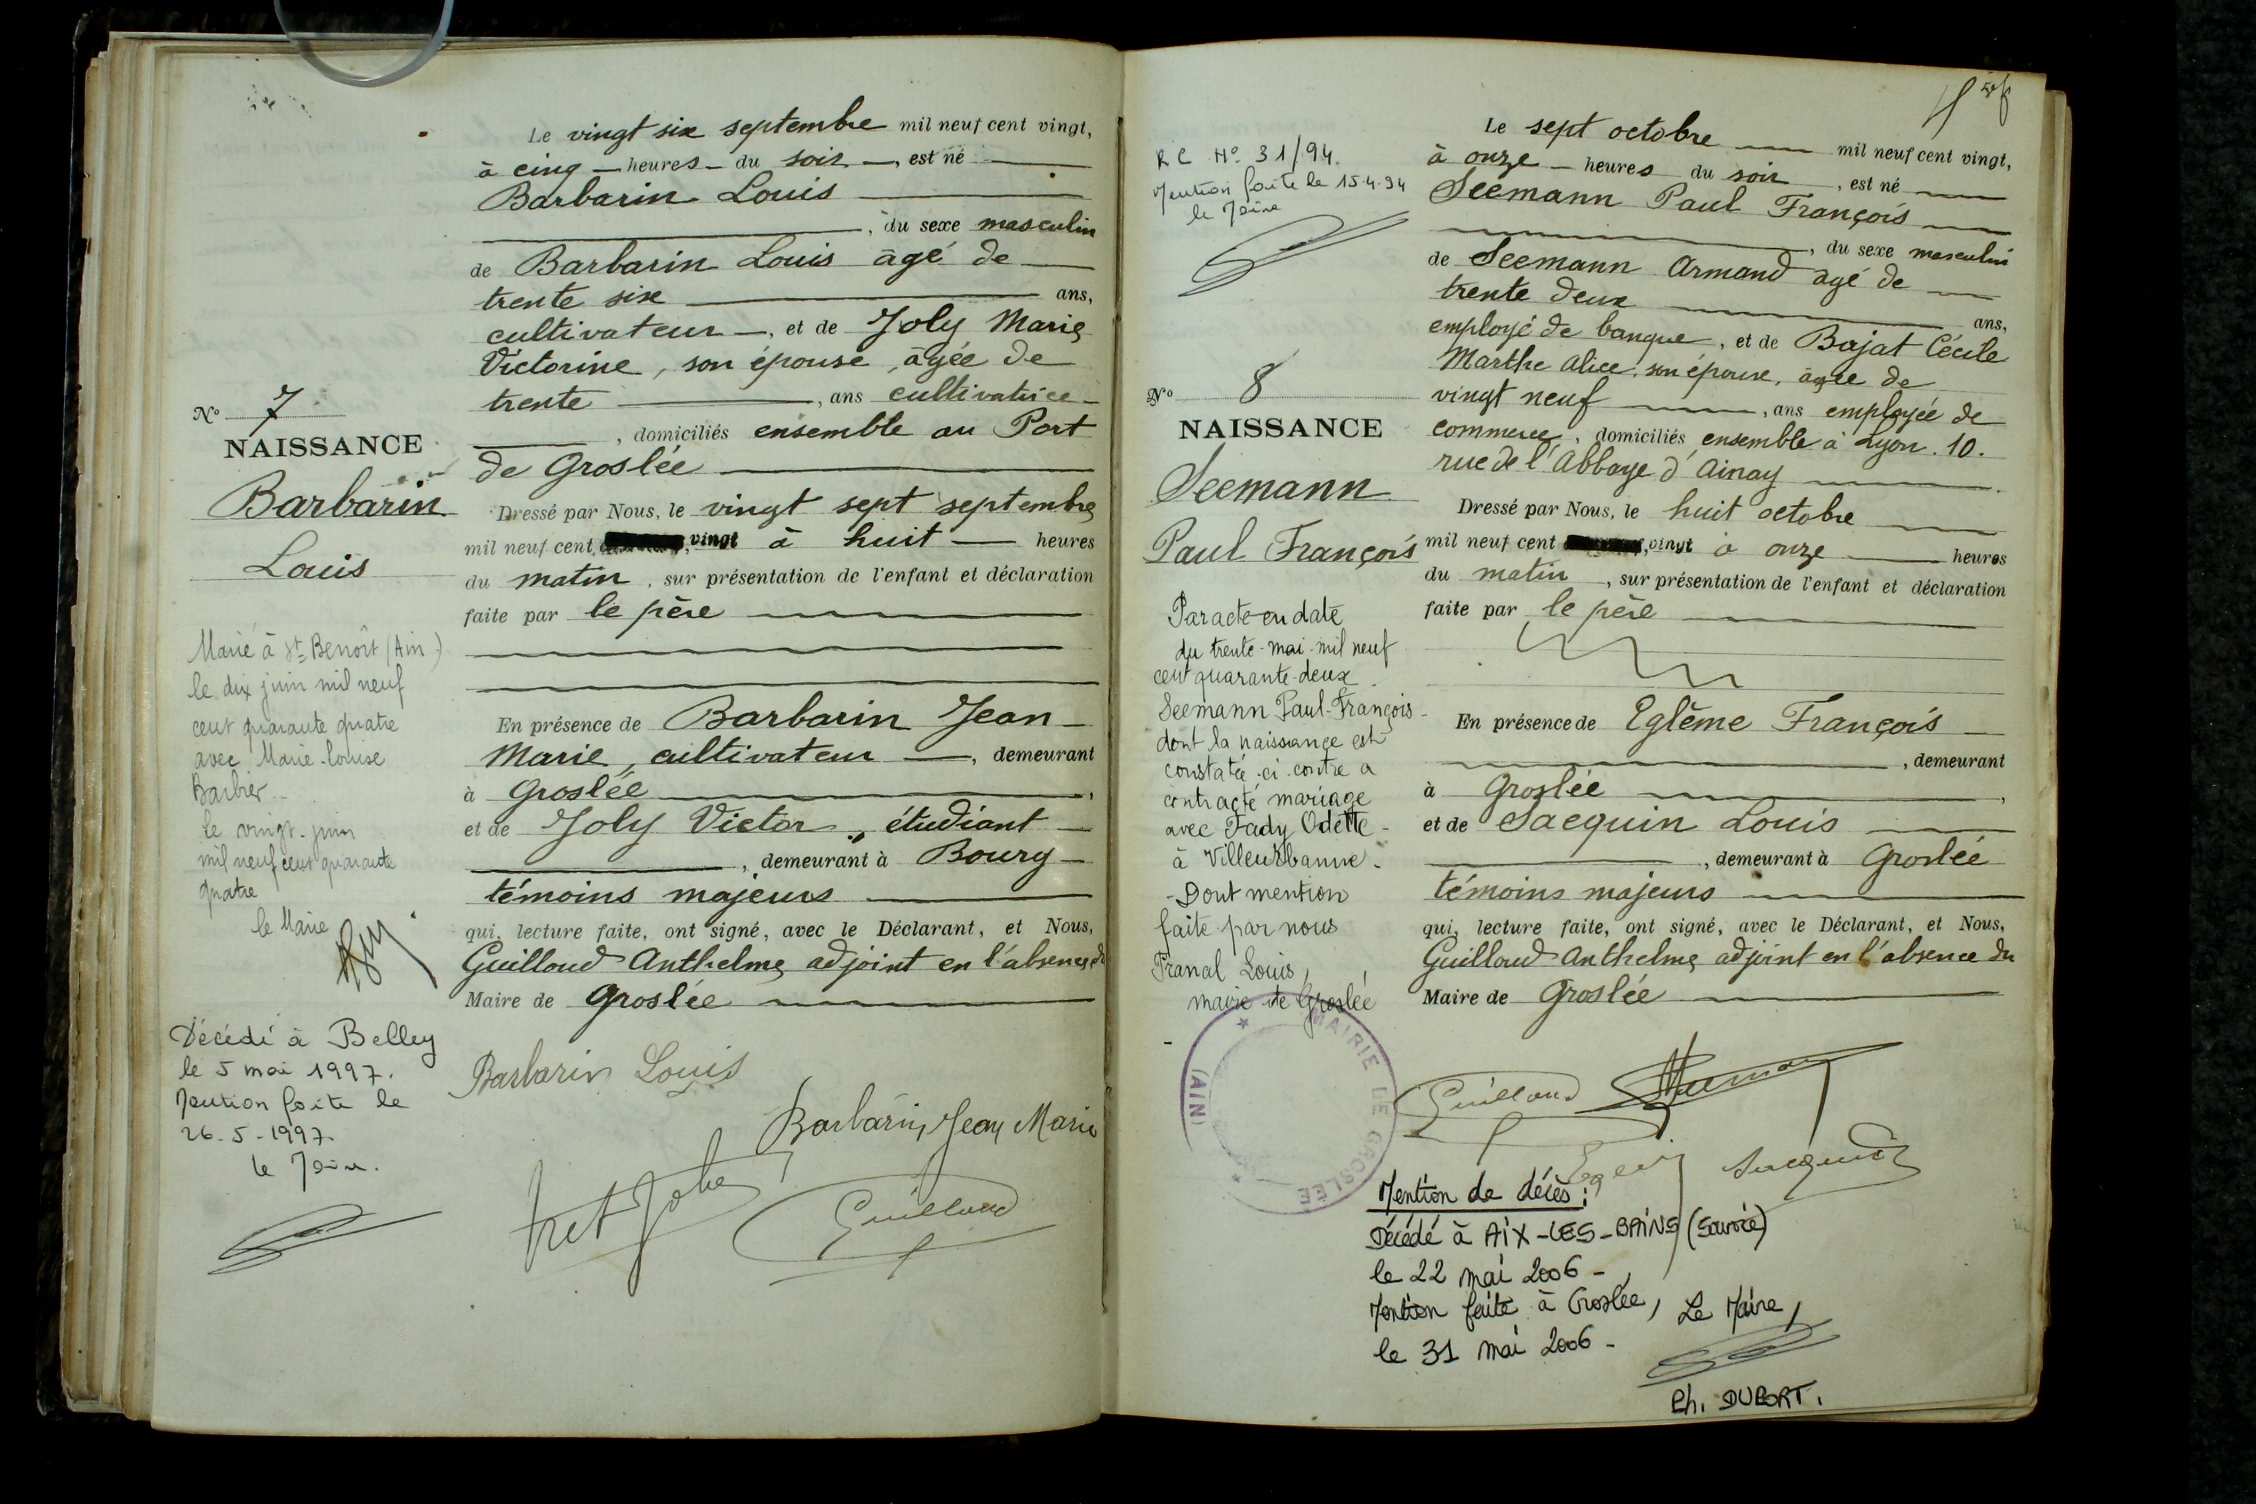 Le vingt six septembre mil neuf cent vingt,
à cinq heures du soir, est né
Barbarin Louis
, du sexe masculin
de Barbarin Louis âgé de
trente six ans,
cultivateur, et de Joly Marie
Victorine, son épouse, âgée de
trente, ans cultivatrice
, domiciliés ensemble au Port
de Groslée
Dressé par Nous, le vingt sept septembre
mil neuf cent vingt à huit heures
du matin, sur présentation de l'enfant et déclaration
faite par le père
En présence de Barbarin Jean
Marie, cultivateur, demeurant
à Groslée,
et de Joly Victor, étudiant
, demeurant à Bourg
témoins majeurs
qui, lecture faite, ont signé, avec le Déclarant, et Nous,
Guilloud Anthelme adjoint en l'absence du
Maire de Groslée
Barbarin Louis
Barbarin Jean Marie
Guilloud
No 7
NAISSANCE
Barbarin
Louis
Marié à St Benoît (Ain)
le dix juin mil neuf
cent quarante quatre
avec Marie-Louise
Barbier
le vingt juin
mil neuf cent quarante
quatre
le Maire
Décédé à Belley
le 5 mai 1997.
Mention faite le
26-5-1997.
le Maire.
RC No 31/94.
Mention faite le 15.4.94
le Maire
No 8
NAISSANCE
Seemann
Paul François
Par acte en date
du trente mai mil neuf
cent quarante-deux
Seemann Paul-François
dont la naissance est
constatée ci-contre a
contracté mariage
avec Fady Odette
à Villeurbanne.
Dont mention
faite par nous
Louis,
maire de Groslée
MAIRIE DE GROSLÉE
(AIN)
Le sept octobre mil neuf cent vingt,
à onze heures du soir, est né
Seemann Paul François
, du sexe masculin
de Seemann Armand âgé de
trente deux ans,
employé de banque, et de Bajat Cécile
Marthe Alice, son épouse, âgée de
vingt neuf, ans employée de
commerce, domiciliés ensemble à Lyon. 10.
rue de l'Abbaye d'Ainay
Dressé par Nous, le huit octobre
mil neuf cent vingt à onze heures
du matin, sur présentation de l'enfant et déclaration
faite par le père
En présence de Eglème François
, demeurant
à Groslée,
et de Sacquin Louis
, demeurant à Groslée
témoins majeurs
qui, lecture faite, ont signé, avec le Déclarant, et Nous,
Guilloud Anthelme adjoint en l'absence du
Maire de Groslée
Guilloud
Mention de décès :
Décédé à AIX-LES-BAINS (Savoie)
le 22 mai 2006 -
Mention faite à Groslée, Le Maire,
le 31 mai 2006 -
Ph. DUPORT.